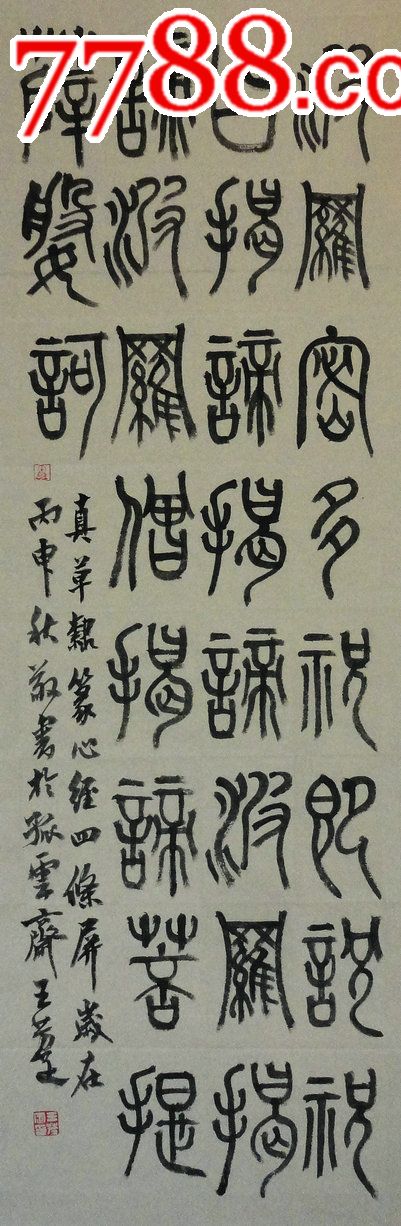 7788.co
波羅密多祝即說祝
曰揭諦揭諦波羅揭
諦波羅僧揭諦菩提
薩婆訶
真草隸篆心經四條屏歲在
丙申秋敬書於孤雲齋王